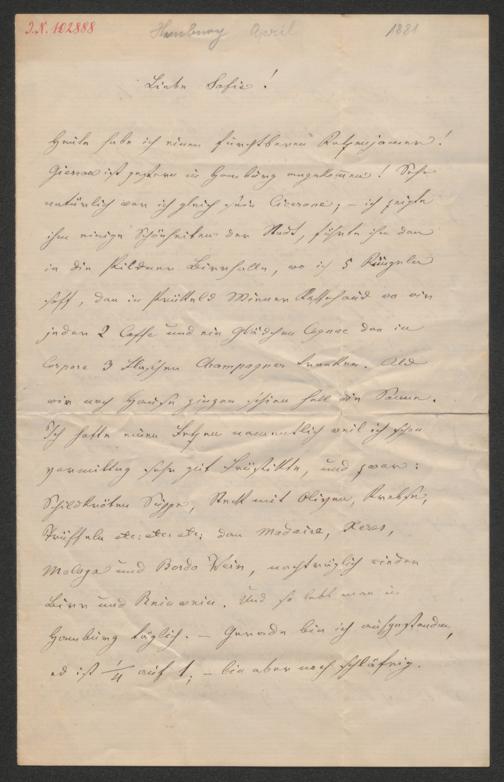 J.N. 102888
Hamburg April 1881
Liebe Sofie!
Heute habe ich einen furchtbaren Katzenjamer!
ist gestern in Hamburg angekommen! Sehr
natürlich war ich gleich sein Cicerone; – ich zeigte
ihm einige Schönheiten der Stadt, führte ihn dan
in die Bierhalle, wo ich 5 Küngeln
soff, dan in Wiener Kaffehaus wo wir
jeder 2 Caffe und ein Gläschen Cognac dan in
Corpore 3 Flaschen Champagner tranken. Als
wir nach Hause gingen schien hell die Sonne.
Ich hatte einen Fetzen namentlich weil ich schon
vormittag sehr gut frühstükte, und zwar:
Schildkröten Suppe, mit Oliven, Krebse,
Trüffeln etc: etc: etc; dan Madaira, Xeres,
Malaga und Bordo Wein, nachträglich wieder
Bier und Reinwein. Und so lebt man in
Hamburg täglich. – Gerade bin ich aufgestanden,
es ist 1/4 auf 1, – bin aber noch schläfrig.